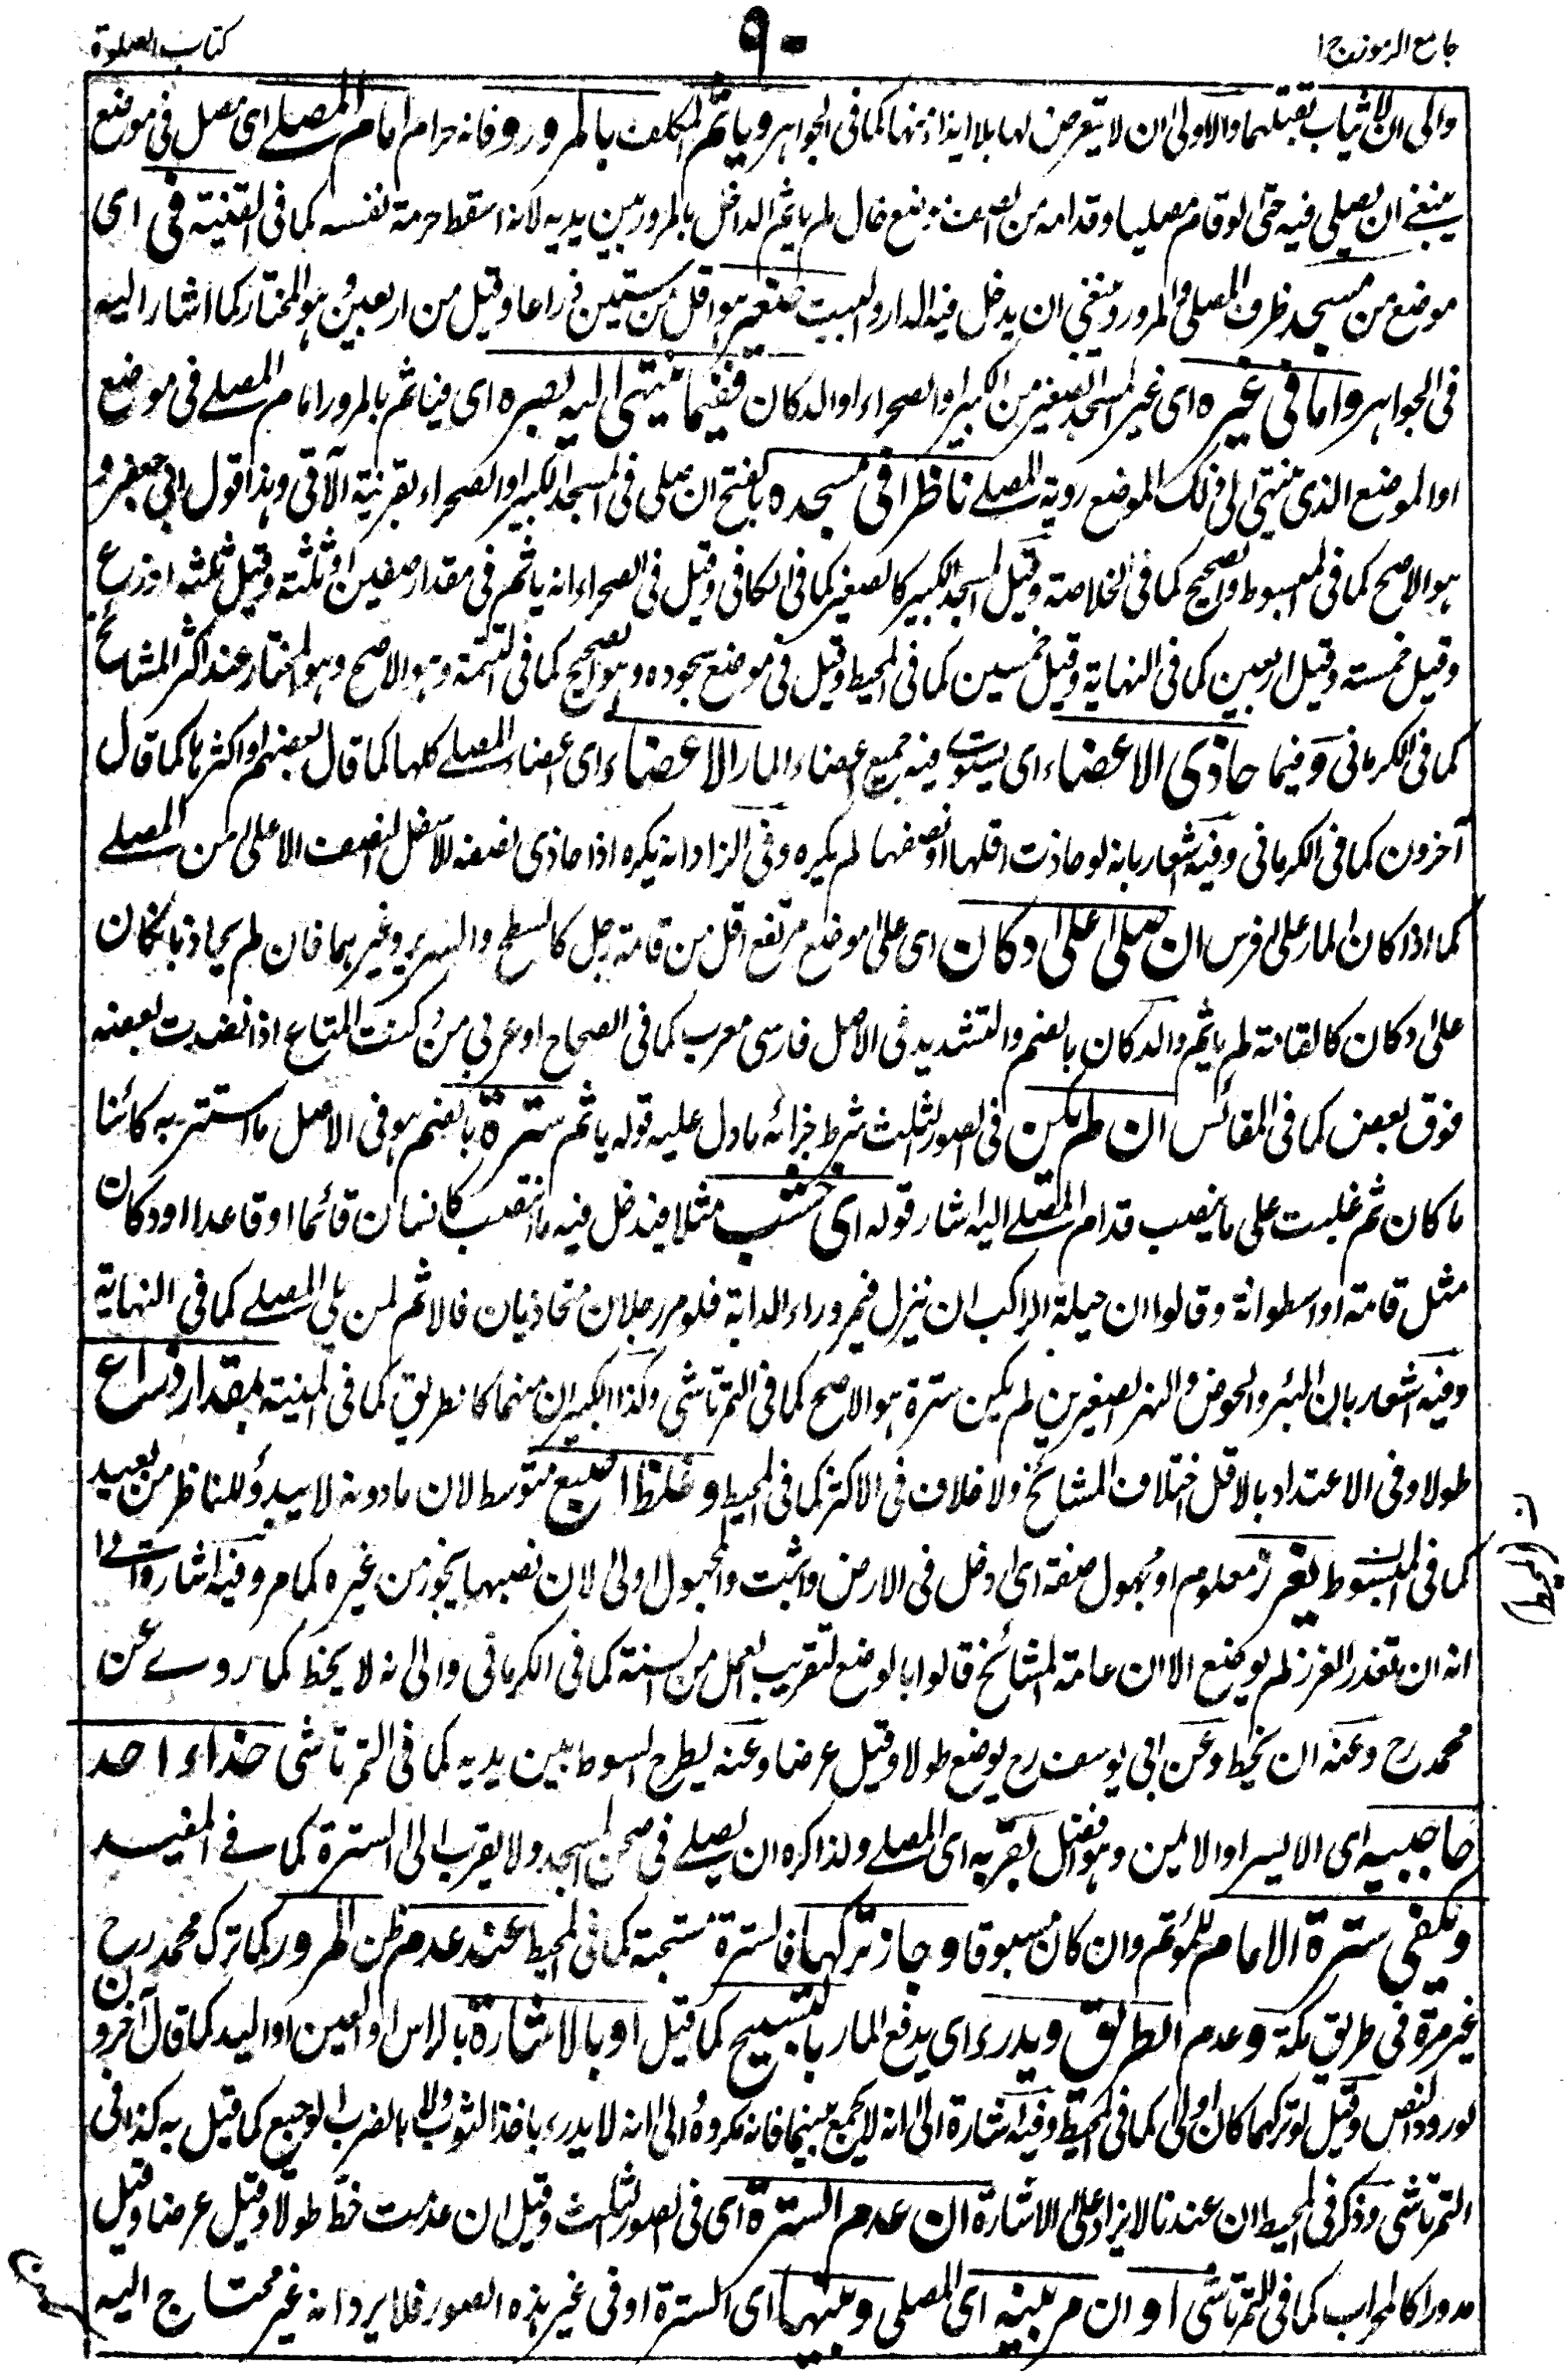 جامع الرموز ج١
٩٠
كتاب الصلوة
والى ان لا ثياب بقتلهما والاولى ان لا يتعرض لها بلا ايذاء منها كما فى الجواهر وياثم المكلف بالمرور فانه حرام امام المصلے اى مصل فى موضع
ينبغے ان يصلى فيه حتى لو قام مصليا وقدامه من الصف موضع خال لم ياثم الداخل بالمرور بين يديه لانه اسقط حرمة نفسه كما فى القنية فى اى
موضع من مسجد ظرف المصلى والمرور وينبغى ان يدخل فيه الدار والبيت صغير هو اقل من ستين ذراعا وقيل من اربعين وهو المختار كما اشار اليه
فى الجواهر واما فى غيره اى غير المسجد الصغير من الكبير او الصحراء او الدكان ففيما ينتهى اليه بصره اى فياثم بالمرور امام المصلے فى موضع
او الموضع الذى ينتهى الى ذلك الموضع روية المصلے ناظرا فى مسجده بالفتح ان صلى فى المسجد الكبير او الصحراء بقرينة الآتى وهذا قول ابى جعفر و
هو الاصح كما فى المبسوط والصحيح كما فى الخلاصة وقيل المسجد الكبير كالصغير كما فى الكافى وقيل فى الصحراء انه ياثم فى مقدار صفين او ثلثة وقيل ثلثة اذرع
وقيل خمسة وقيل اربعين كما فى النهاية وقيل خمسين كما فى المحيط وقيل فى موضع سجوده وهو الصحيح كما فى التتمة وهو الاصح وهو المختار عند اكثر المشائخ
كما فى الكرمانى وفيما حاذى الاعضاء اى يستوے فيه جميع اعضاء المار الاعضاء اى اعضاء المصلے كلها كما قال بعضهم او اكثرها كما قال
آخرون كما فى الكرمانى وفيه اشعار بانه لو حاذت اقلها او نصفها لم يكره وفى الزاد انه يكره اذا حاذى نصفه الاسفل النصف الاعلى من المصلے
كما اذا كان المار على فرس ان صلى على دكان اى على موضع مرتفع اقل من قامة رجل كالسطح والسرير وغيرهما فان لم يحاذ بان كان
على دكان كالقامة لم ياثم والدكان بالضم والتشديد فى الاصل فارسى معرب كما فى الصحاح او عربى من دكنت المتاع اذا نضدت بعضه
فوق بعض كما فى المقائس ان لم يكن فى الصور الثلث شرط جزائه ما دل عليه قوله ياثم سترة بالضم هو فى الاصل ما استتر به كائنا
ما كان ثم غلبت على ما ينصب قدام المصلے اليه اشار قوله اى خشب مثلا فيدخل فيه ما انتصب كانسان قائما او قاعدا او دكان
مثل قامة او اسطوانة وقالوا ان حيلة الراكب ان ينزل فيمر وراء الدابة فلو مر رجلان متحاذيان فالاثم لمن يلى المصلے كما فى النهاية
وفيه اشعار بان البئر والحوض والنهر الصغيرين لم يكن سترة هو الاصح كما فى التمرتاشى وكذا الكبيران منهما كالطريق كما فى المنية بمقدار ذراع
طولا وفى الاعتداد بالاقل اختلاف المشائخ ولا خلاف فى الاكثر كما فى المحيط وغلظ اصبع متوسط لان ما دونه لا يبدو للناظر من بعيد
كما فى المبسوط يغرز معلوم او مجهول صفة اى ادخل فى الارض واثبت والمجهول اولى لان نصبها يجوز من غيره كما مر وفيه اشارة الى
انه ان تعذر الغرز لم يوضع الا ان عامة المشائخ قالوا بالوضع لتقريب العمل من السنة كما فى الكرمانى والى انه لا يخط كما روے عن
محمد رح وعنه ان يخط وعن ابى يوسف رح يوضع طولا وقيل عرضا وعنه يطرح السوط بين يديه كما فى التمرتاشى حذاء احد
حاجبيه اى الايسر او الايمن وهو افضل بقربه اى المصلے ولذا كره ان يصلے فى صحن المسجد ولا يقرب الى السترة كما فے المفيد
ويكفى سترة الامام للمؤتم وان كان مسبوقا وجاز تركها فالسترة مستحبة كما فى المحيط عند عدم ظن المرور كما ترك محمد رح
غير مرة فى طريق مكة وعدم الطريق ويدرء اى يدفع المار بالتسبيح كما قيل او بالاشارة بالراس او العين او اليد كما قال آخرون
لورود النص وقيل لو تركهما كان اولى كما فى المحيط وفيه اشارة الى انه لا يجمع بينهما فانه مكروه والى انه لا يدرء باخذ الثوب ولا بالضرب الوجيع كما قيل به كذا فى
التمرتاشى وذكر فى المحيط ان عندنا لا يزاد على الاشارة ان عدم السترة اى فى الصور الثلث وقيل ان عدمت خط طولا وقيل عرضا وقيل
مدورا كالمحراب كما فى التمرتاشى او ان مر بينه اى المصلى وبينها اى السترة او فى غير هذه الصور فلا يرد انه غير محتاج اليه